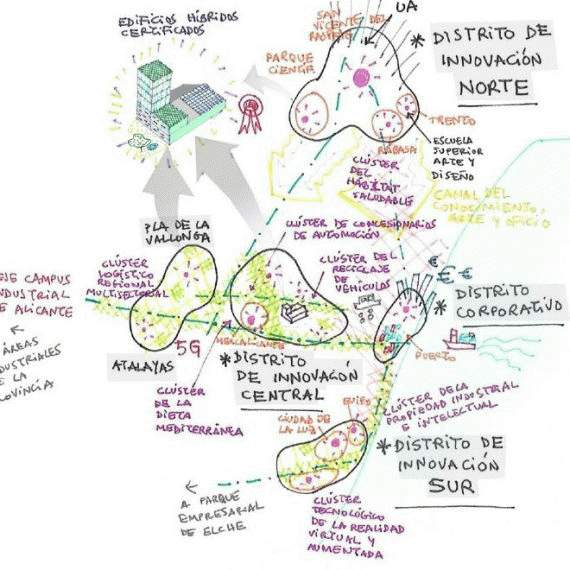 EDIFICIOS HÍBRIDOS
CERTIFICADOS
SAN
VICENTE DEL
RASPEIG
UA
* DISTRITO DE
INNOVACIÓN
NORTE
PARQUE
TRENTO
RABASA
ESCUELA
SUPERIOR
ARTE Y
DISEÑO
CLÚSTER
DEL
HÁBITAT
SALUDABLE
CANAL DEL
CONOCIMIENTO,
ARTE Y OFICIO
PLA DE LA
VALLONGA
CLÚSTER
LOGÍSTICO
REGIONAL
MULTISECTORIAL
CLÚSTER DE CONCESIONARIOS
DE AUTOMOCIÓN
CLÚSTER DEL
RECICLAJE
DE
VEHÍCULOS
€ € €
* DISTRITO
CORPORATIVO
PUERTO
EJE CAMPUS
INDUSTRIAL
DE ALICANTE
ÁREAS
INDUSTRIALES
DE LA
PROVINCIA
ATALAYAS
5G
MERCALICANTE
* DISTRITO
DE INNOVACIÓN
CENTRAL
CLÚSTER
DE LA
DIETA
MEDITERRÁNEA
CIUDAD DE
LA LUZ
EUIPO
CLÚSTER DE LA
PROPIEDAD INDUSTRIAL
E INTELECTUAL
* DISTRITO DE
INNOVACIÓN
SUR
A PARQUE
EMPRESARIAL
DE ELCHE
CLÚSTER
TECNOLÓGICO
DE LA REALIDAD
VIRTUAL Y
AUMENTADA